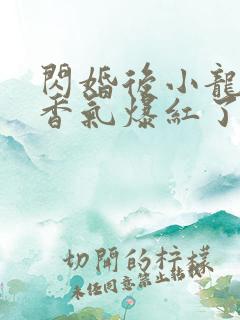 閃婚後小龍
香氣爆紅了
切開的柠檬
未经同意禁止转载